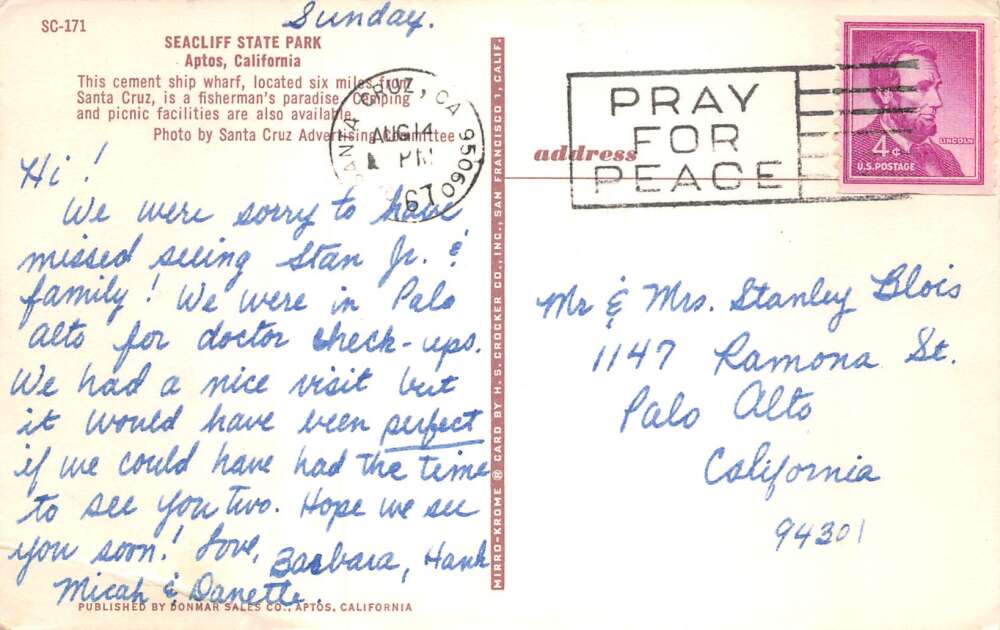 SC-171
Sunday.
SEACLIFF STATE PARK
Aptos, California
This cement ship wharf, located six miles from
Santa Cruz, is a fisherman's paradise. Camping
and picnic facilities are also available.
Photo by Santa Cruz Advertising Committee
SANTA CRUZ, CA 95060
AUG 14
PM
1967
PRAY
FOR
PEACE
LINCOLN
4¢
U.S. POSTAGE
address
Hi!
We were sorry to have
missed seeing Stan Jr. &
family! We were in Palo
Alto for doctor check-ups.
We had a nice visit but
it would have been perfect
if we could have had the time
to see you two. Hope we see
you soon! Love,
Barbara, Hank
Micah & Danette.
PUBLISHED BY DONMAR SALES CO., APTOS, CALIFORNIA
MIRRO-KROME ® CARD BY H. S. CROCKER CO., INC., SAN FRANCISCO 1, CALIF.
Mr & Mrs. Stanley Blois
1147 Ramona St.
Palo Alto
California
94301